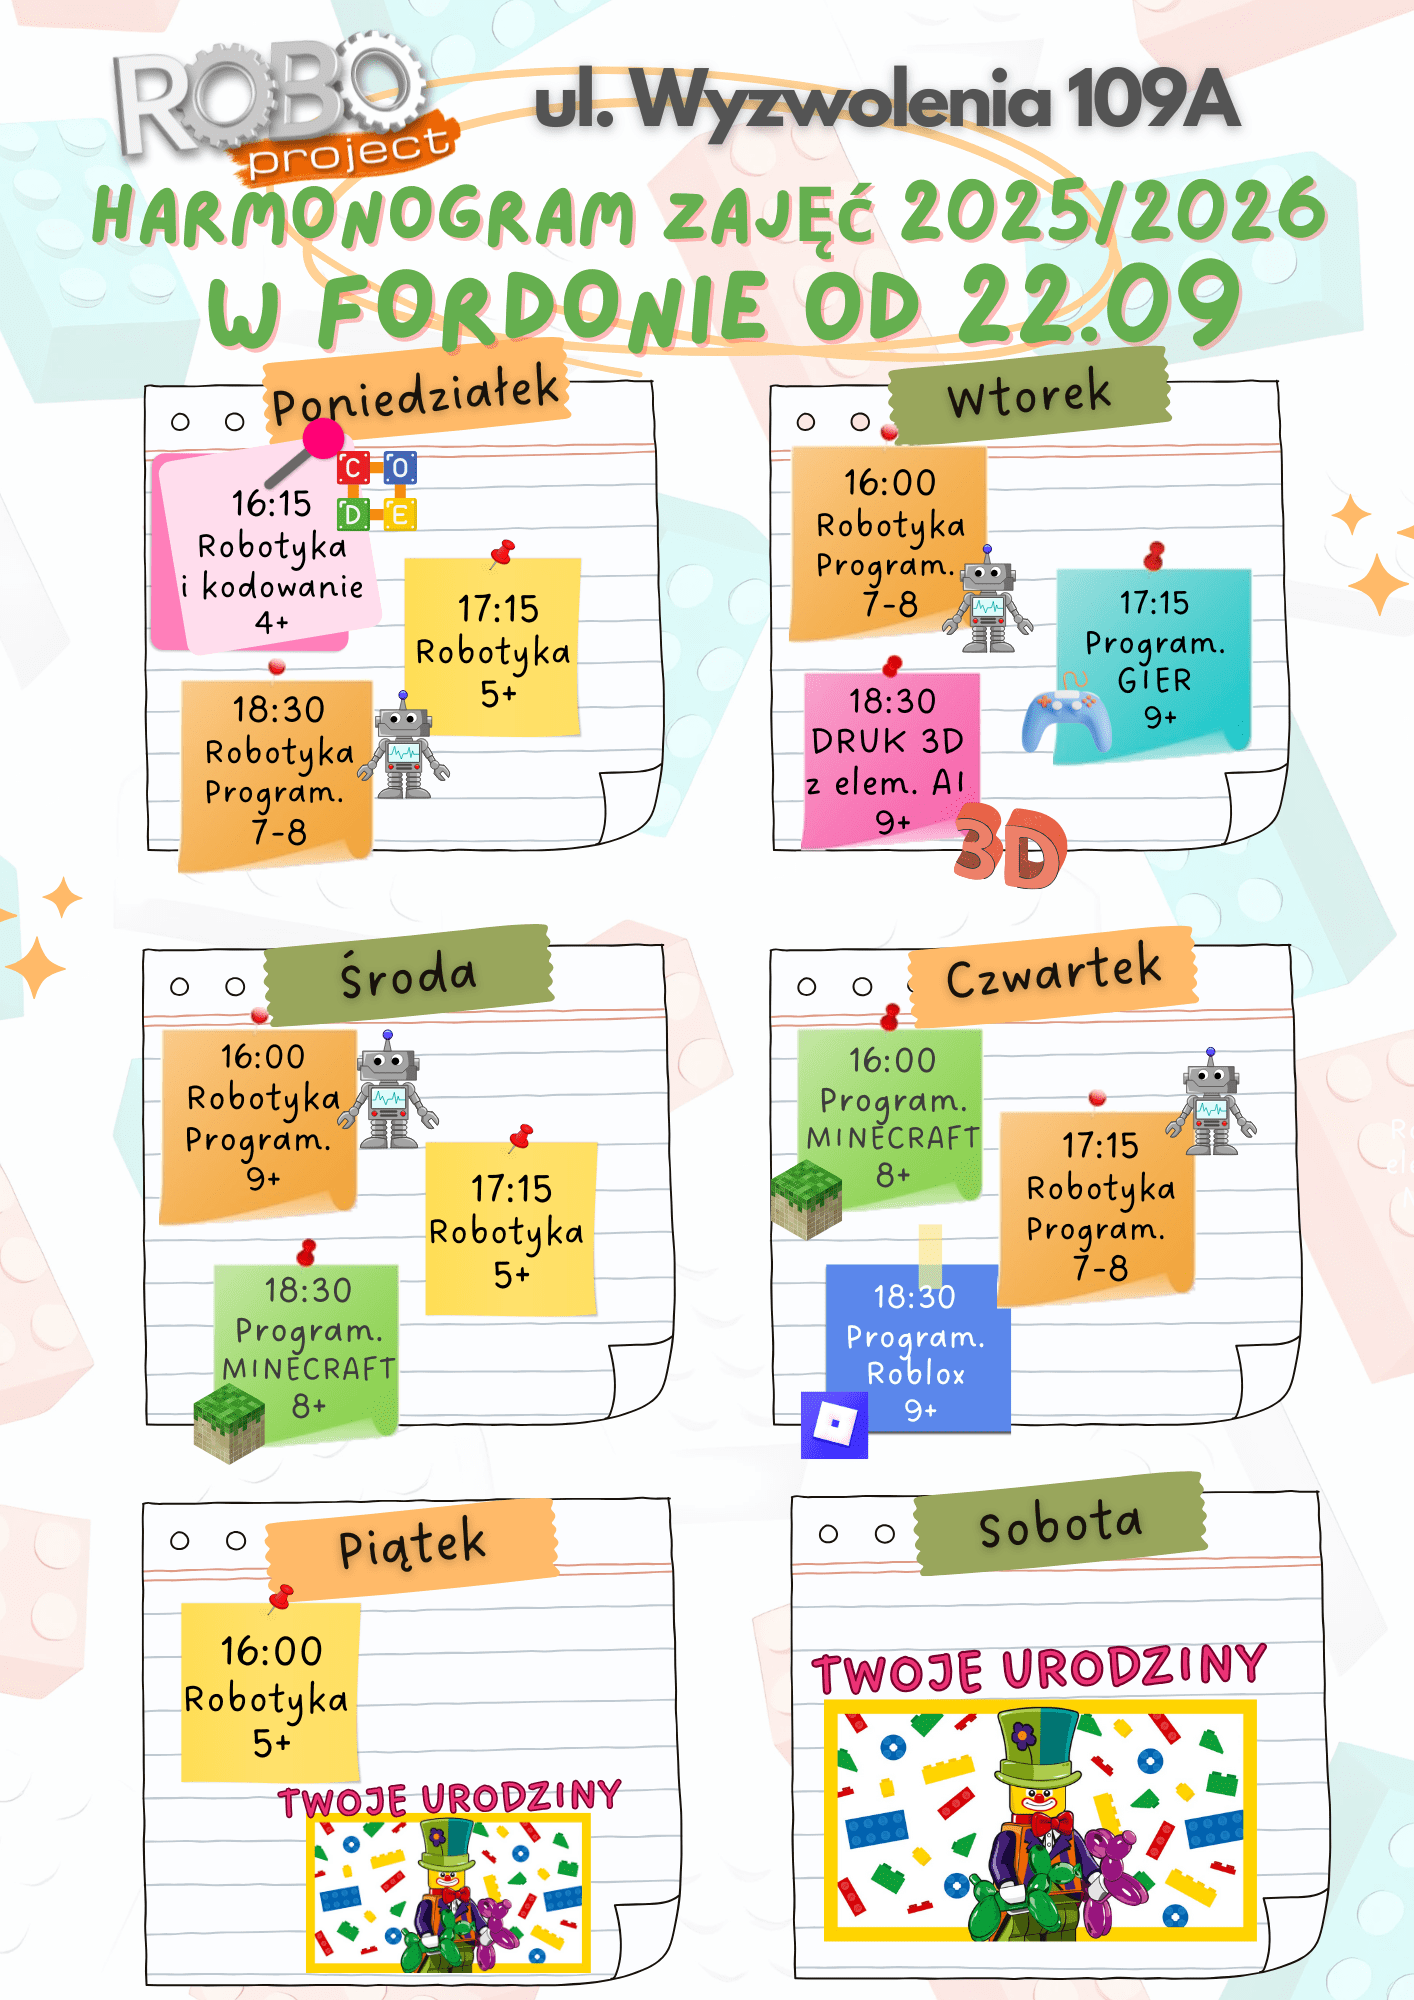 ROBO
project
ul. Wyzwolenia 109A
HARMONOGRAM ZAJĘĆ 2025/2026
W FORDONIE OD 22.09
Poniedziałek
16:15
Robotyka
i kodowanie
4+
C O
D E
17:15
Robotyka
5+
18:30
Robotyka
Program.
7-8
Wtorek
16:00
Robotyka
Program.
7-8
17:15
Program.
GIER
9+
18:30
DRUK 3D
z elem. AI
9+
3D
Środa
16:00
Robotyka
Program.
9+
17:15
Robotyka
5+
18:30
Program.
MINECRAFT
8+
Czwartek
16:00
Program.
MINECRAFT
8+
17:15
Robotyka
Program.
7-8
18:30
Program.
Roblox
9+
Piątek
16:00
Robotyka
5+
TWOJE URODZINY
Sobota
TWOJE URODZINY